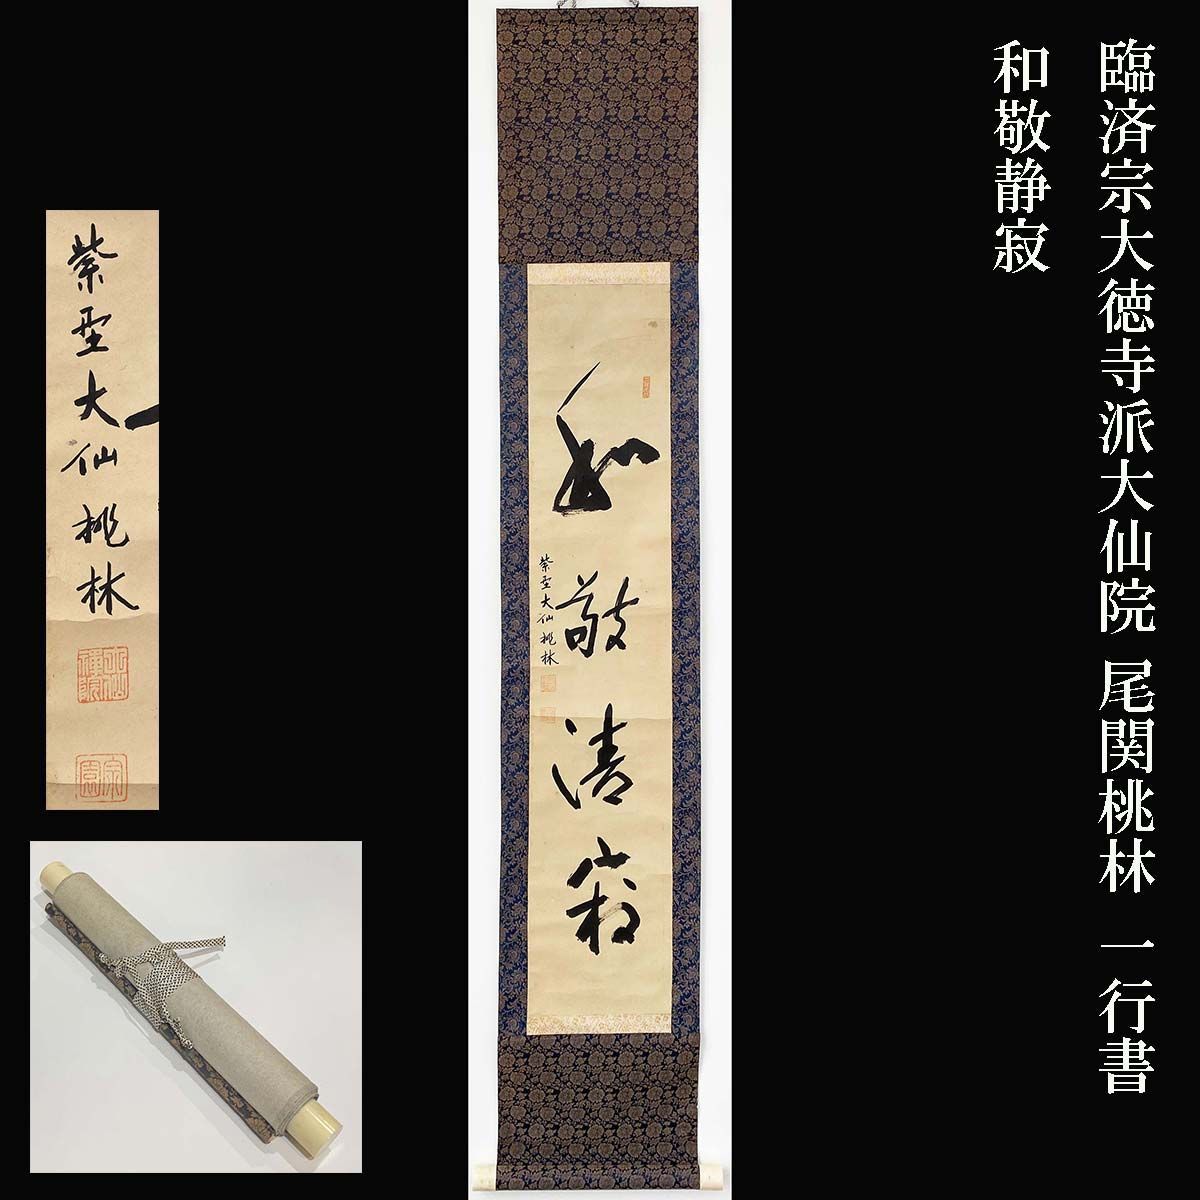 臨済宗大徳寺派大仙院 尾関桃林 一行書
和敬静寂
和敬清寂
紫埜大仙桃林
紫埜大仙桃林
大仙禅院
宗園